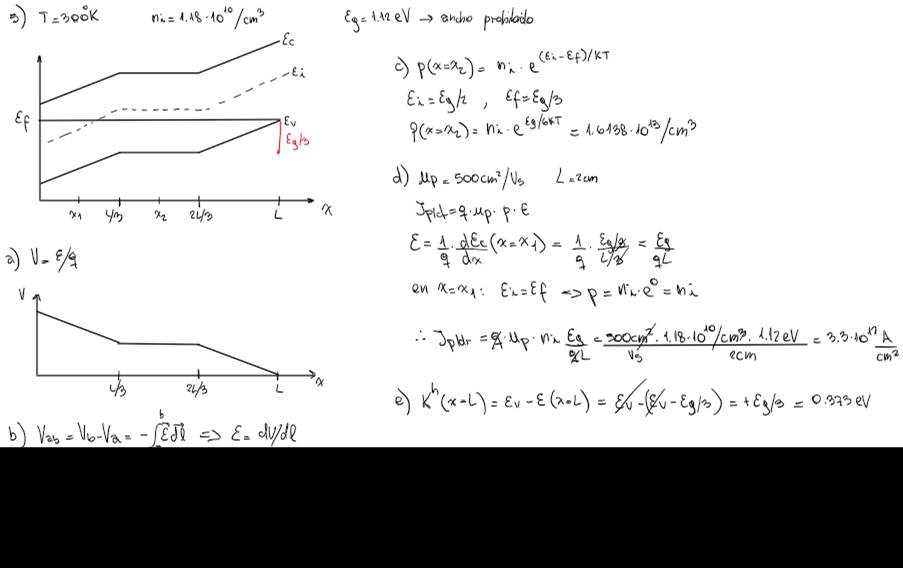 3) T=300°K ni=1.18·10^10/cm^3 Eg=1.12eV → ancho prohibido
Ec
Ei
Ef
Ev
Eg/3
x1 L/3 x2 2L/3 L x
a) V=E/q
V
L/3 2L/3 L x
b) Vab = Vb-Va = -∫ₐᵇ Ē dl̄ => E = dV/dl
c) p(x=x2) = ni·e^(Ei-Ef)/KT
Ei=Eg/2 , Ef=Eg/3
p(x=x2) = ni·e^Eg/6KT = 1.6138·10^13/cm^3
d) μp=500cm^2/Vs L=2cm
Jp|d=q·μp·p·E
E=1/q·dEc/dx(x=x1) = 1/q·(Eg/3)/(L/3) = Eg/qL
en x=x1: Ei=Ef => p=ni·e^0=ni
∴ Jp|dr=q·μp·ni Eg/qL = 500cm^2·1.18·10^10/cm^3·1.12eV/Vs 2cm = 3.3·10^12 A/cm^2
e) K^h(x=L) = Ev-E(x=L) = Ev-(Ev-Eg/3) = +Eg/3 = 0.373eV